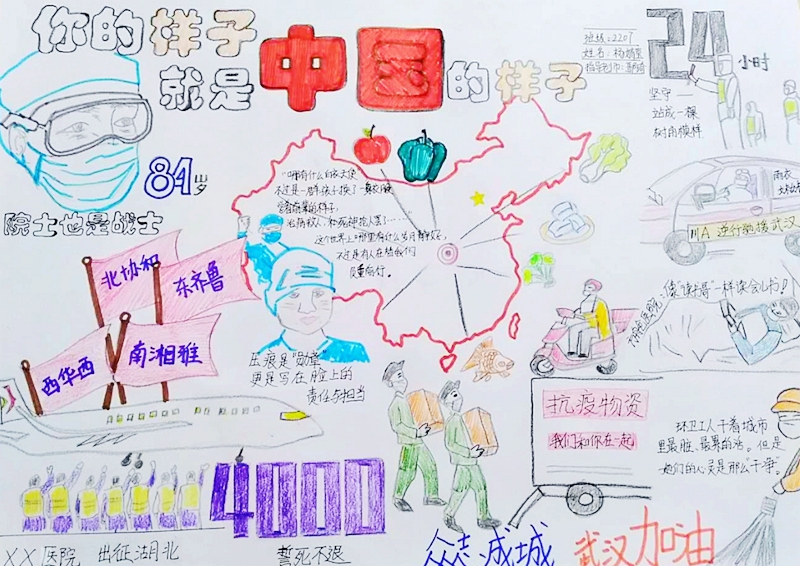 你的样子
就是中国的样子
班级:2207
姓名:
指导教师:
24小时
坚守——
站成一棵
树的模样
84岁
院士也是战士
"哪有什么白衣天使,
不过是一群孩子换了一身衣服,
学着前辈的样子,
治病救人、和死神抢人罢了……
这个世界上哪里有什么岁月静好,
不过是有人在替我们
负重前行。
雨衣
川A 逆行驰援武汉
北协和
东齐鲁
西华西
南湘雅
压痕是"勋章"
更是写在脸上的
责任与担当
像"读博"一样读会儿书!
抗疫物资
我们和你在一起
环卫工人干着城市
里最脏、最累的活。但是
她们的心灵是那么干净。
4000
XX医院 出征湖北
誓死不退
众志成城
武汉加油